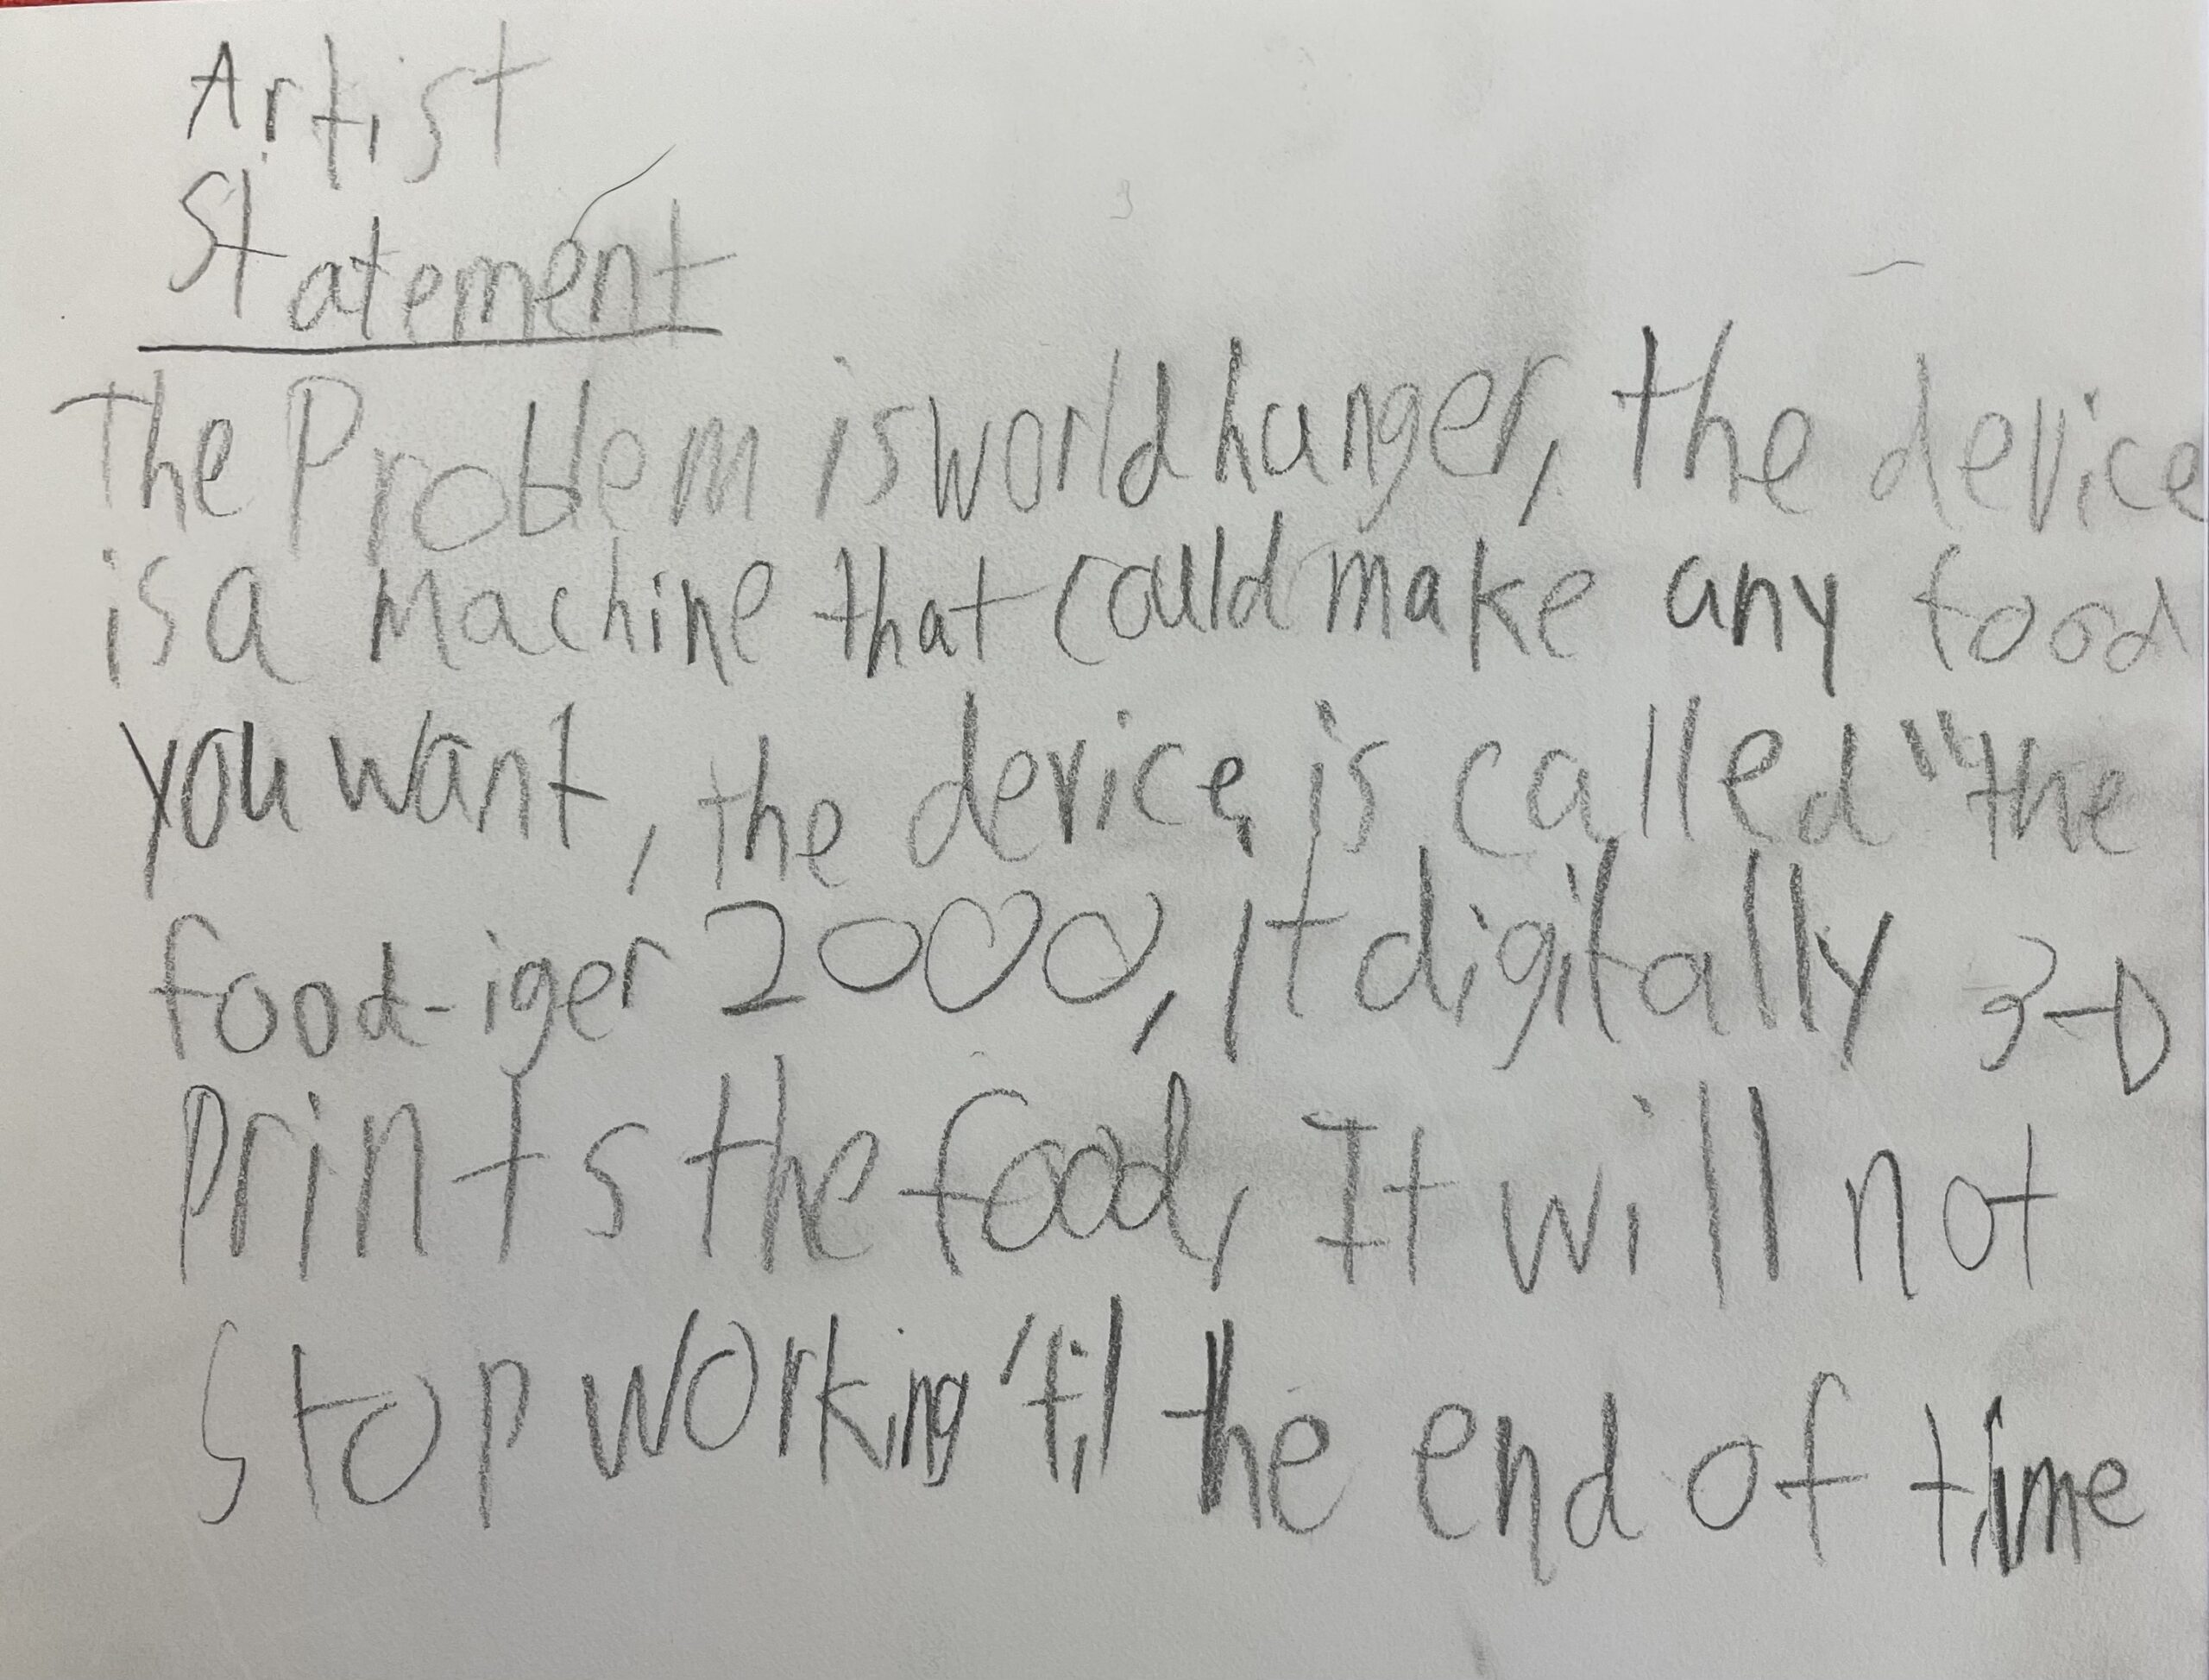 Artist
Statement
The Problem is world hunger, the device
is a Machine that could make any food
you want, the device is called "the
food-iger 2000, it digitally 3-D
prints the food, It will not
Stop working 'til the end of time